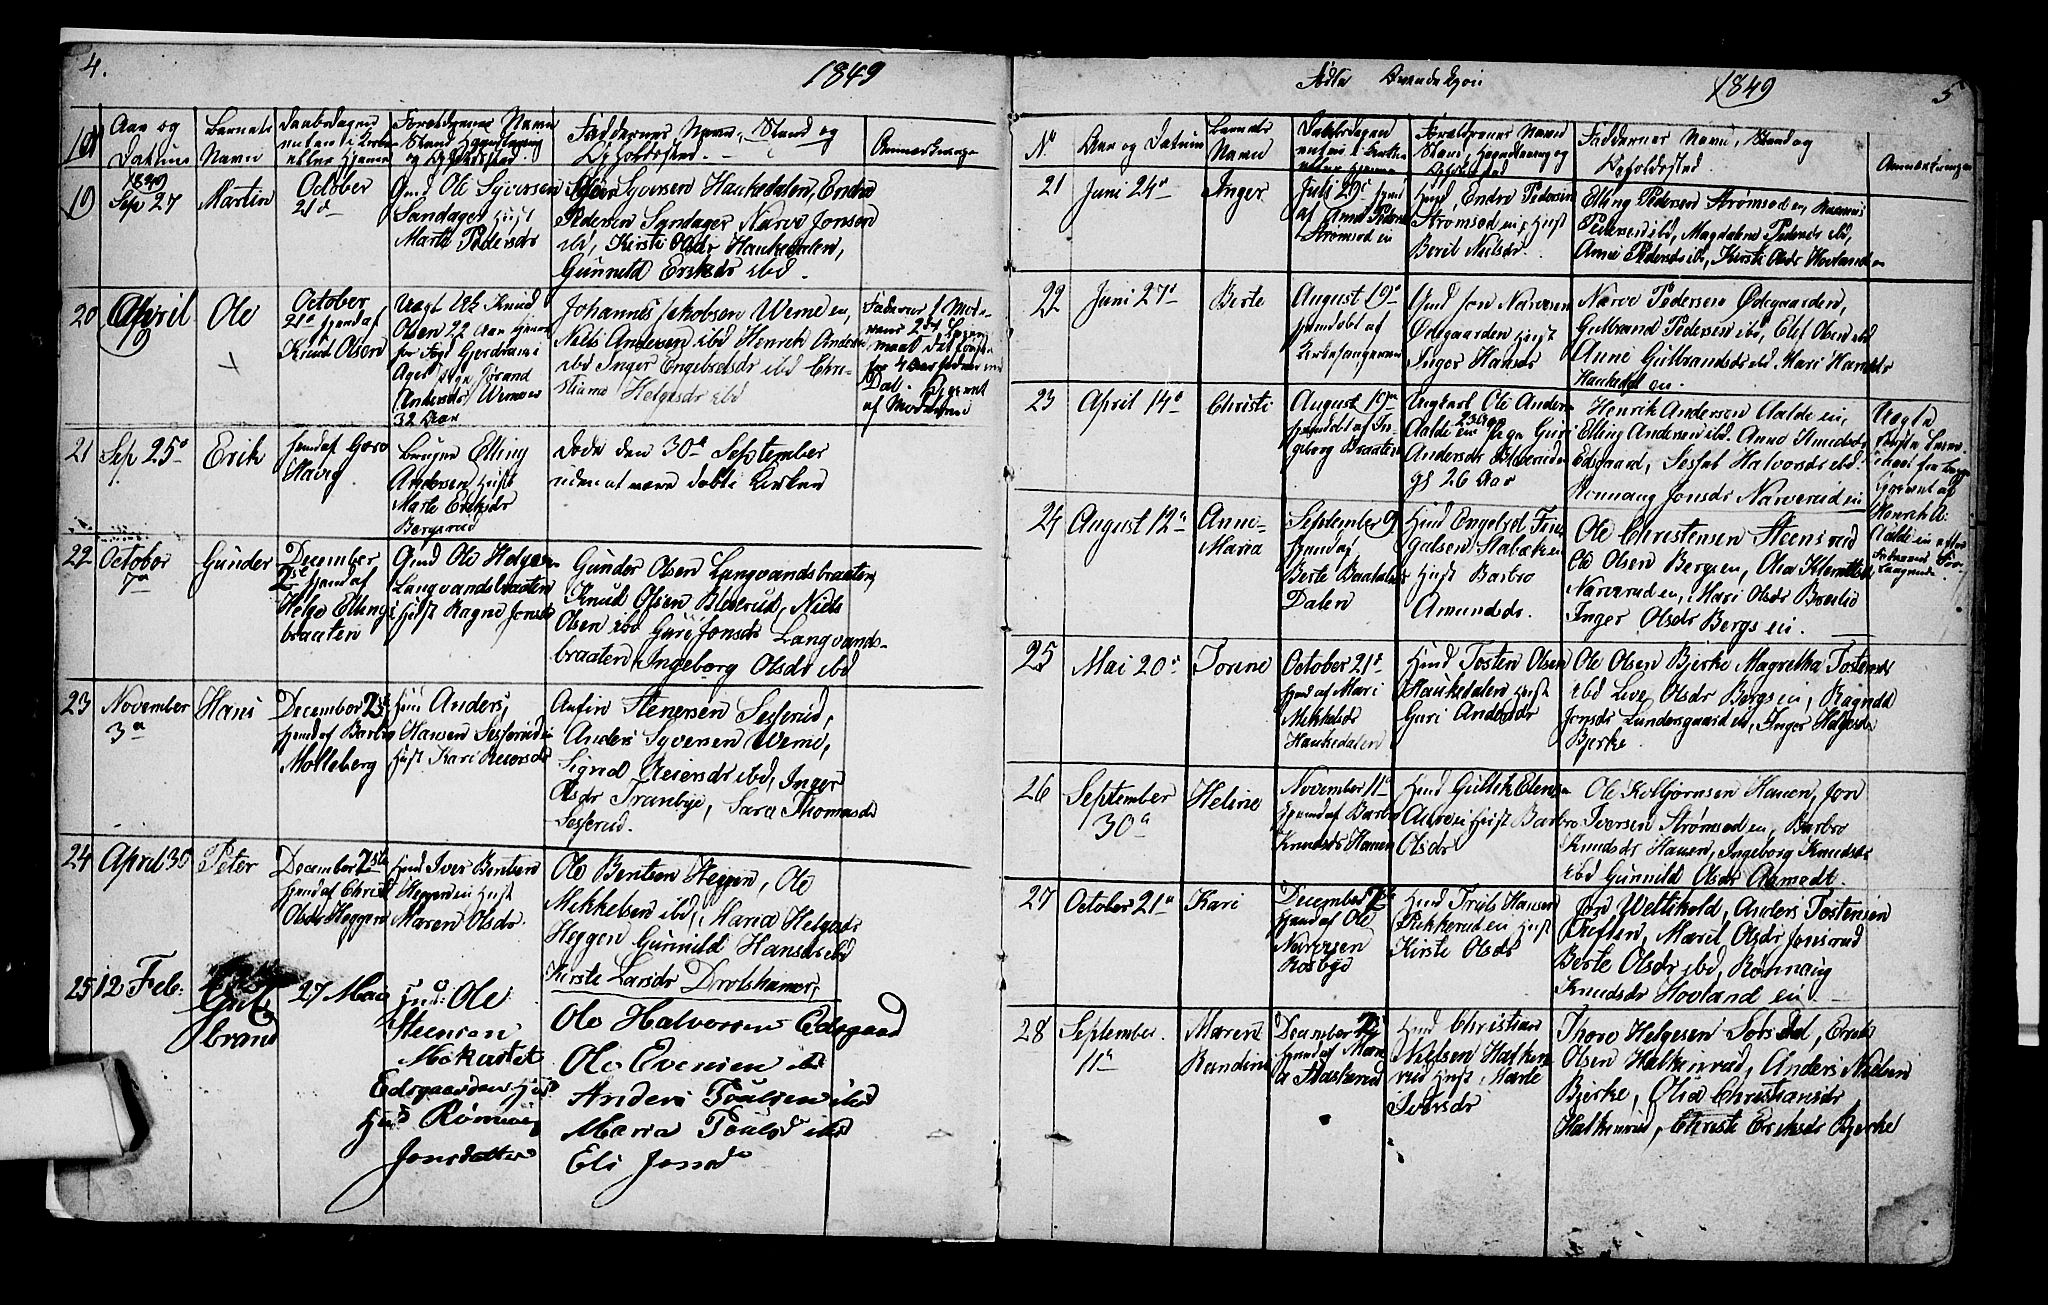 4.
1849
No
Aar og
Datum
Barnets
Navn
Daabsdagen
enten i Kirken
eller hjemme
Forældrenes Navn
Stand Haandtering
og Opholdssted
Faddernes Navn, Stand og
Opholdssted.
Anmærkninger
19
1849
Sep 27
Martin
October
21de
Gmd Ole Syversen
Sandager Hust
Marte Pedersdr
Syver Syversen Haukedalen, Endre
Pedersen Sandager Narve Jonsen
ibd, Kirsti Olsdr Haukedalen,
Gunnild Eriksdr ibd.
20
April
19
Ole
October
21de hjemd af
Knud Olsen
Ungk Knud
Olsen 22 Aar
Ager Pige Jørand
Andersdr Werne
32 Aar
Johannes Jakobsen Werne ei,
Niels Andersen ibd Henrik Anders
ibd Inger Engebretsdr ibd Chri-
stiane Helgesdr ibd
Faderens 1 Mod-
erens 2det Leier-
maal
Dal. Opgivet
af Moderen
21
Sep 25de
Erik
hjemd af Goro
Haug
Elling
Andersen Hust
Marte Eriksdr
Bergerud
Døde den 30te September
uden at være døbt i Kirken
22
October
7de
Gunder
December
2den hjemd af
Helge Ellings
braaten
Gmd Ole Helgesen
Langvandsbraaten
Hust Ragne Jonsdr
Gunder Olsen Langvandsbraaten,
Knud Olsen Blekerud, Niels
Olsen ibd Guri Jonsdr Langvands-
braaten, Ingeborg Olsdr ibd
23
November
3de
Hans
December 2den
hjemd af Barbro
Molleberg
Hmd Anders
Hansen Sesserud ei
Hust Kari Reiersdr
Anfin Stenersen Sesserud,
Anders Syversen Werne,
Signe Reiersdr ibd, Inger
Olsdr Tranbye, Sara Thomasdr
Sesserud.
24
April 30
Peter
December 2den
hjemd af Christi
Olsdr Heggen
Hmd Iver Bentsen
Heggen ei Hust
Maren Olsdr
Ole Bentsen Heggen, Ole
Mikkelsen ibd, Maria Helgesdr
Heggen Gunnild Hansdr ibd
Kirste Larsdr Drolshamer,
25
12 Feb:
Gul
brand
27 Mai
Hmd: Ole
Steensen
Edsgaarden Hust
Rønnoug
Jonsdatter
Ole Halvorsen Edsgaard
Ole Evensen ibd
Anders Poulsen ibd
Maria Poulsd ibd
Eli Jonsd
1849
5
N.
Aar og Datum
Barnets
Navn
Daabsdagen
enten i Kirken
eller hjemme
Forældrenes Navn
Stand, Haandtering og
Opholdssted
Faddernes Navn, Stand og
Opholdssted
Anmærkninger
21
Juni 24de
Inger
Juli 29de hjemd
af Anne Pedersd
Strømsod ei
Hmd, Endre Pedersen
Strømsod ei, Hust
Beril Nielsdr.
Elling Pedersen Strømsod ei, Rasmus
Pedersen ibd, Magdalene Pedersdr ibd,
Anne Pedersdr ibd, Kirsti Olsdr Hovland ei
22
Juni 27de
Berte
August 19de
hjemdøbt af
Kirkesangeren
Gmd Jon Narvesen
Ødegaarden Hust
Inger Hansdr
Narve Pedersen Ødegaarden,
Gulbrand Pedersen ibd, Elef Olsen ibd
Anne Gulbrandsdr ibd, Mari Hansdr
Haukedal ei.
23
April 14de
Christi
August 19de
hjemdøbt af In-
geborg Braaten
Ungkarl Ole Anders
Aalde ei 23 Aar Pige Guri
Andersdr Blekerud
26 Aar
Henrik Andersen Aalde ei,
Elling Andersen ibd. Anne Knudsdr
Edsgaard, Sessel Halvorsdr ibd.
Rønnaug Jonsdr Narverud ei
Uægte
første Leier-
maal for begge
Opgivet af
Henrik A.
Aalde ei
24
August 12de
Anne
Maria
September 9
hjemd af
Berte
Dalen
Hmd Engebret Ing-
galsen Stalsken
Hust Barbro
Amundsdr.
Ole Christensen Steensrud
Ole Olsen Bergs ei,
Narverud ei, Mari Olsdr Brerlie
Inger Olsdr Bergs ei.
25
Mai 20de
Torine
October 21de
hjemd af Mari
Mikkelsdr
Haukedalen
Hmd Tosten Olsen
Haukedalen Hust
Guri Andersdr
Ole Olsen Bjerke Magretha Tostensdr
ibd Live Olsdr Bergs ei, Ragnild
Jonsdr Lundersgaard ei, Inger Helgesdr
Bjerke.
26
September
30te
Heline
November 11te
hjemd af Barbro
Knudsdr Hauen
Hmd Gullik Elensen
Hust Barbro
Olsdr
Ole Kolbjørnsen Hauen, Jon
Iversen Strømsod ei, Barbro
Knudsdr Hauen, Ingeborg Knudsdr
ibd Gunnild Olsdr Aamodt.
27
October 21de
Kari
December 2den
hjemd af Ole
Narvesen
Rosbye
Hmd Truls Hansen
Pukkerud ei Hust
Kirste Olsdr
Jon Veltihold, Anders Tostensen
Træften, Maril Olsdr Jonsrud
Berte Olsdr ibd, Rønnaug
Knudsdr Hovland ei
28
September
11te
Maren
Randine
December 2den
hjemd af Mari
Flaskerud
Hmd Christian
Nielsen Halken
rud Hust, Marte
Iversdr
Thore Helgesen Torsdal, Erik
Olsen Halkenrud, Anders Nielsen
Bjerke, Olia Christiansdr
Halkenrud, Christi Eriksdr Bjerke